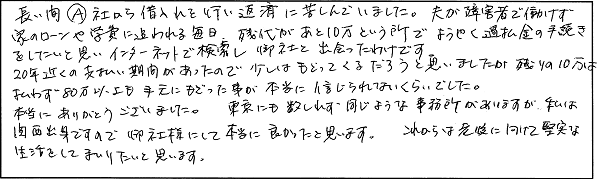 長い間 Ⓐ社から借入れを行い返済に苦しんでいました。 夫が障害者で働けず
家のローンや学費に追われる毎日、残代があと10万という所でようやく過払金の手続き
をしたいと思いインターネットで検索し御社と出会ったわけです。
20年近くの支払い期間があったので少しはもどってくるだろうと思いましたが残りの10万は
払わず80万以上も手元にもどった事が本当に信じられないくらいでした。
本当にありがとうございました。 東京にも数しれず同じような事務所がありますが、私は
関西出身ですので御社様にして本当に良かったと思います。 これからは老後に向けて堅実な
生活をしてまいりたいと思います。